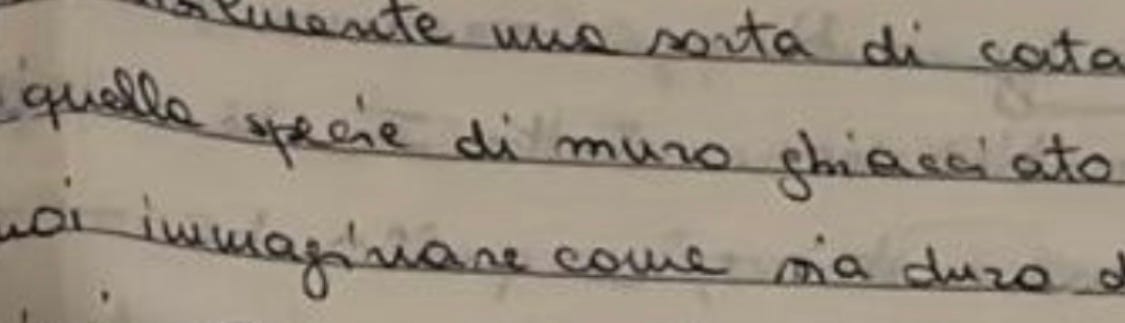 una sorta di cata
quella specie di muro ghiacciato
uoi immaginare come sia duro d